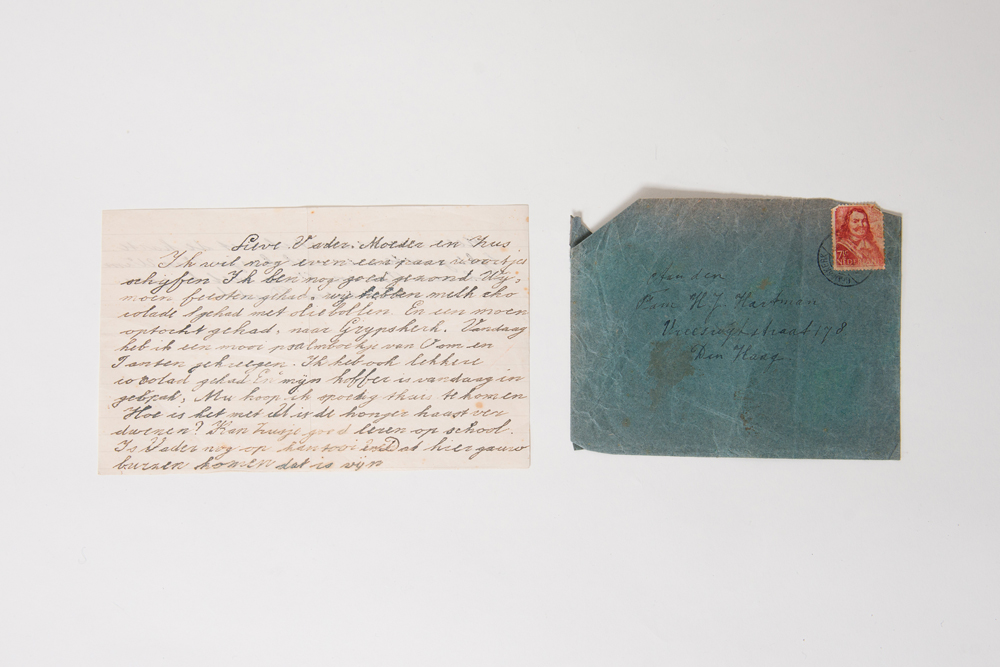 Lieve Vader. Moeder en Zus
Ik wil nog even een paar woortjes
schijfen Ik ben nog goed gezond. Wij
moen feesten gehad. wij hebben melk cho
colade gehad met oliebollen. En een moen
optocht gehad, naar Grypskerk. Vandaag
heb ik een mooi psalmboekje van Oom en
Tanten gekregen. Ik heb ook lekkere
cocolad gehad En mijn koffer is vandaag in
gebpak, Nu hoop ik spoedig thuis te komen
Hoe is het met U is de honger haast ver
dwenen? Kan zusje goed leren op school.
Is Vader nog op kantoor Dat hier gauw
komen dat is vijn
Aan den
Fam H.J. Hartman
Vreeswijkstraat 178
Den Haag
7½ c
NEDERLAND